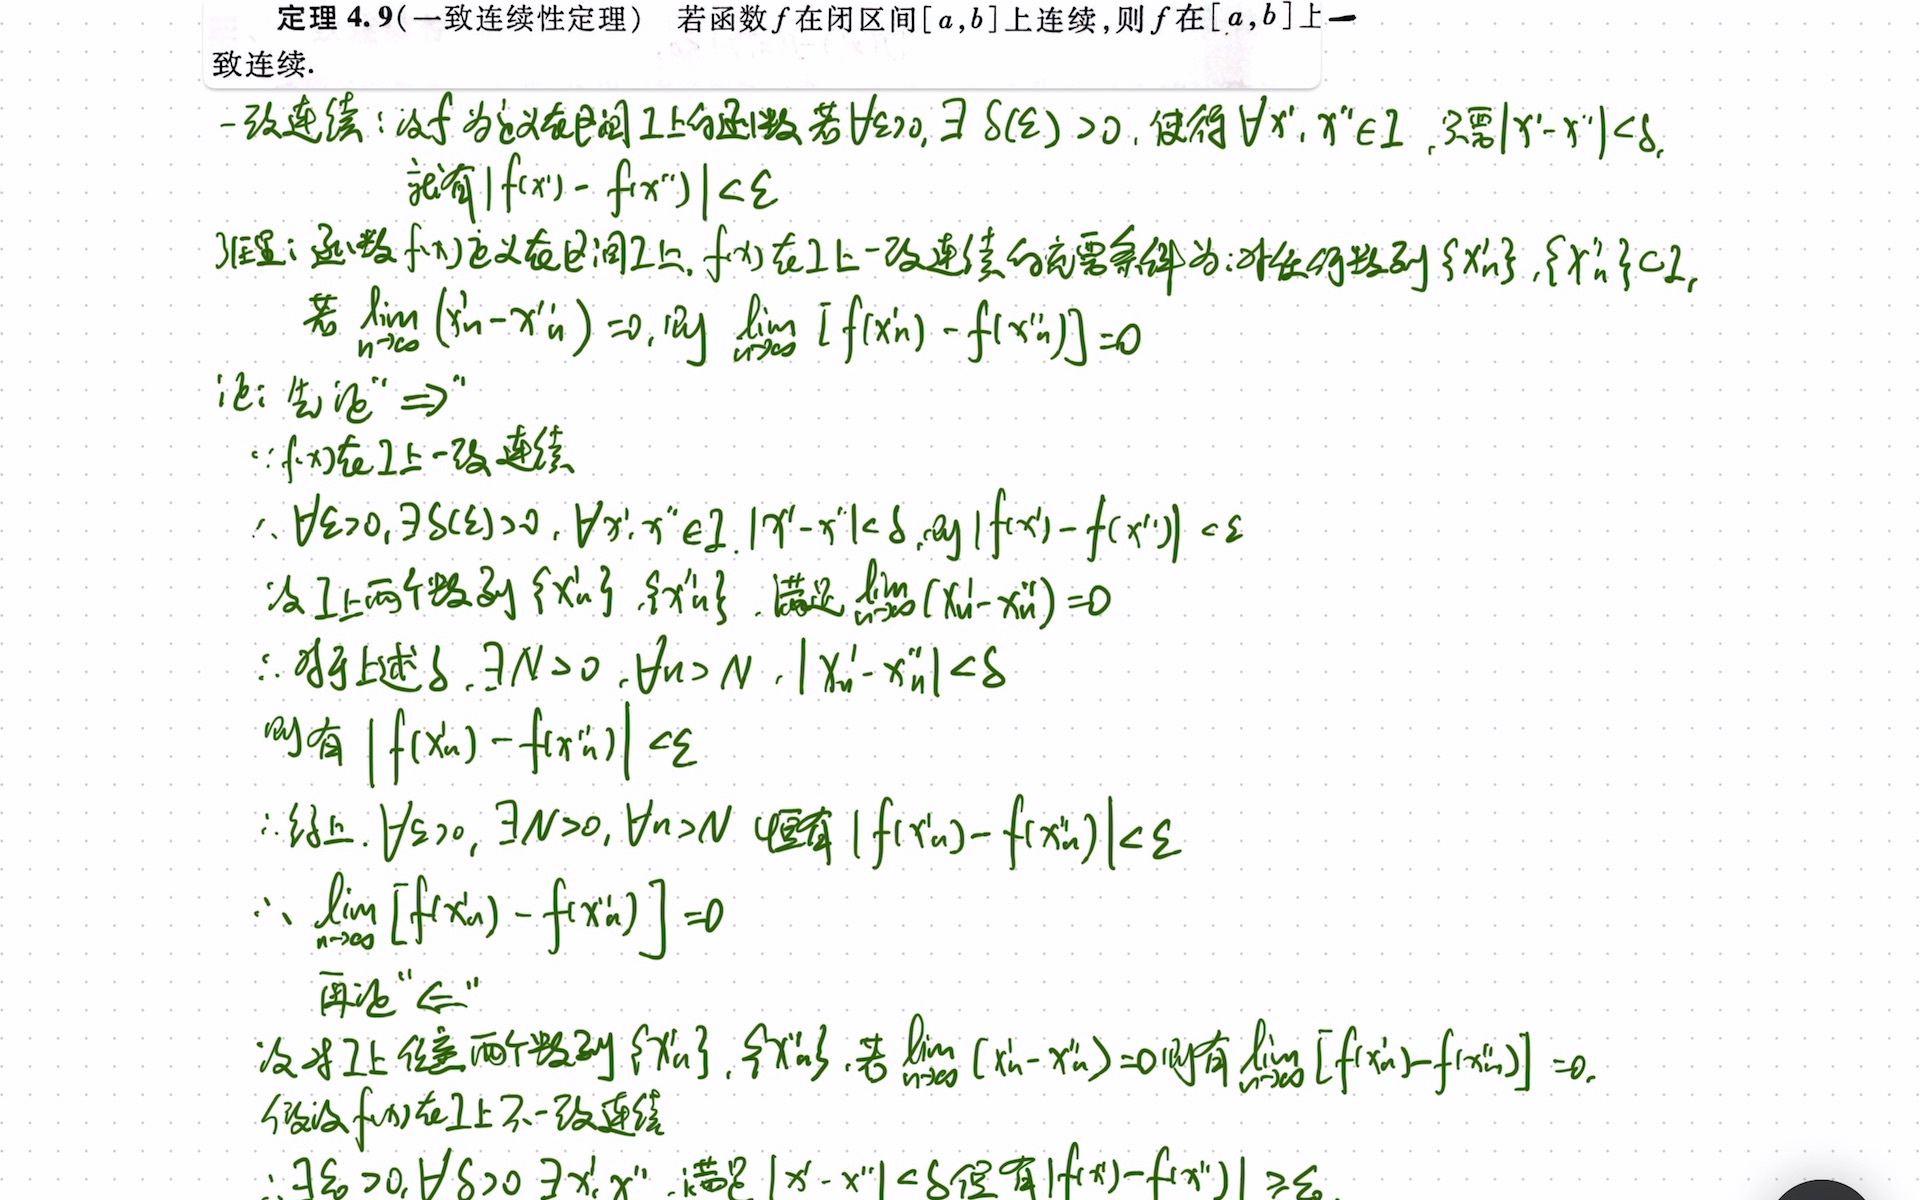 定理 4.9(一致连续性定理) 若函数f在闭区间[a,b]上连续,则f在[a,b]上一
致连续.
一致连续:设f为定义在区间I上的函数若∀ε>0,∃δ(ε)>0,使得∀x',x''∈I,只需|x'-x''|<δ,
就有|f(x')-f(x'')|<ε
引理:函数f(x)定义在区间I上,f(x)在I上一致连续的充要条件为:对任何数列{x'n},{x''n}⊂I,
若 lim n→∞ (x'n-x''n)=0,则 lim n→∞ [f(x'n)-f(x''n)]=0
证:先证“⇒”
∵f(x)在I上一致连续
∴∀ε>0,∃δ(ε)>0,∀x',x''∈I,|x'-x''|<δ,则|f(x')-f(x'')|<ε
设I上两个数列{x'n},{x''n},满足 lim n→∞ (x'n-x''n)=0
∴对于上述δ,∃N>0,∀n>N,|x'n-x''n|<δ
则有|f(x'n)-f(x''n)|<ε
∴综上,∀ε>0,∃N>0,∀n>N 恒有|f(x'n)-f(x''n)|<ε
∴ lim n→∞ [f(x'n)-f(x''n)]=0
再证“⇐”
设对I上任意两个数列{x'n},{x''n},若 lim n→∞ (x'n-x''n)=0则有 lim n→∞ [f(x'n)-f(x''n)]=0.
假设f(x)在I上不一致连续
∴∃ε₀>0,∀δ>0 ∃x',x'',满足|x'-x''|<δ但有|f(x')-f(x'')|≥ε₀